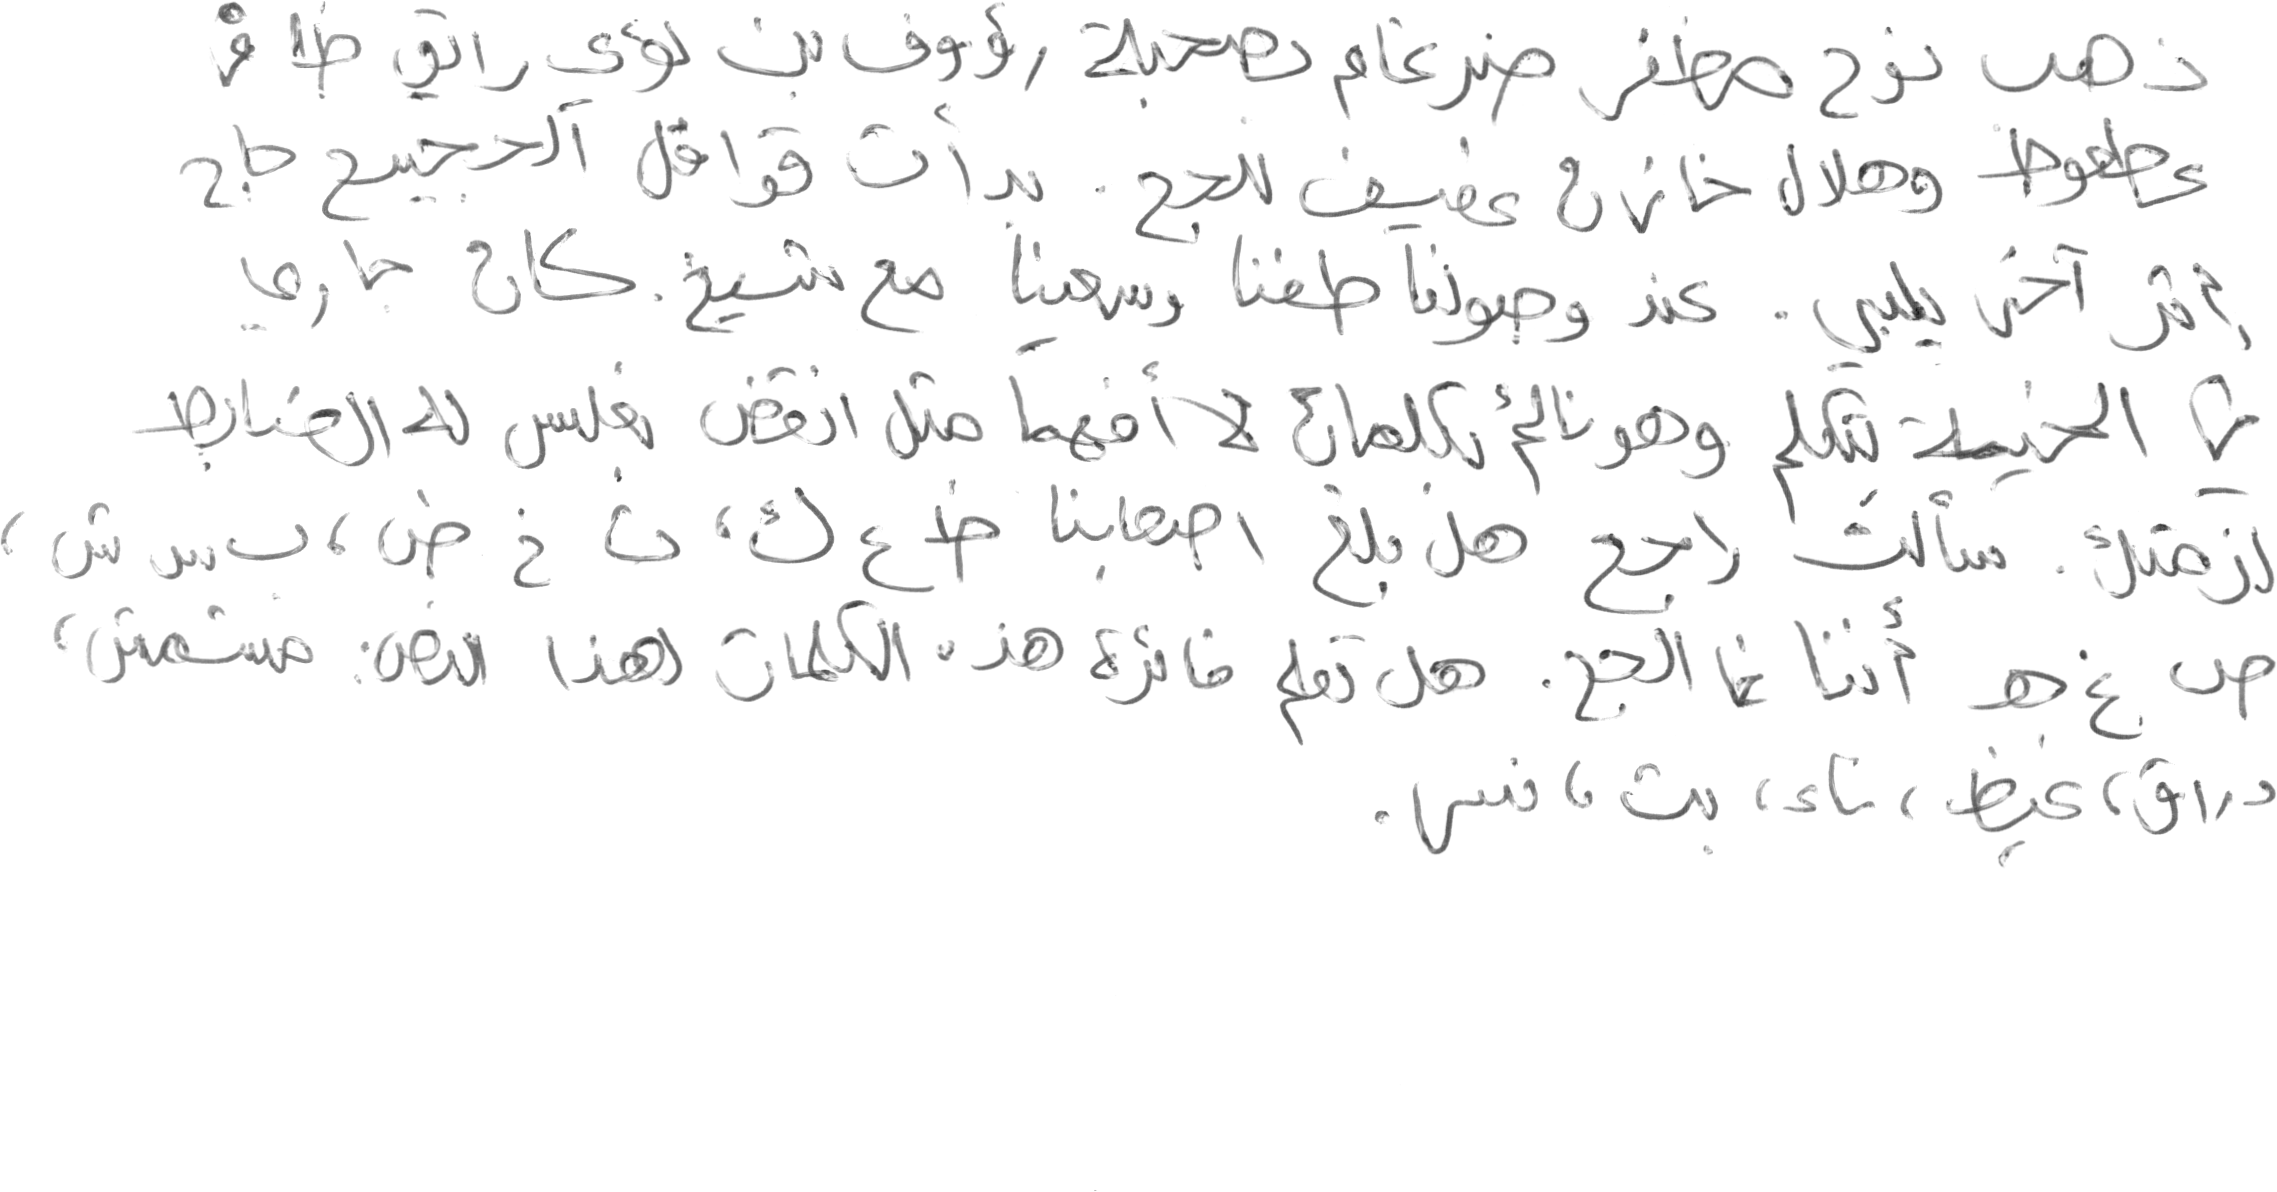 ذهب نوح مظفر ضرغام بصحبة رؤوف بن لؤي رائق ظافر
عطعوط وهلال خازن عفيف للحج . بدأت قوافل الحجيج حاج
إثر آخر يلبي . عند وصولنا طفنا وسعينا مع شيخ . كان جاري
في الخيمة يتكلم وهو نائم بكلمات لا أفهمها مثل انقض بغلس له الضابط
لزمتك . سألت راجح هل بلغ اصحابنا ظ ع ك ، ث خ ض ، ب س ش ،
ص غ هـ أننا في الحج . هل تعلم فائزة هذه الكلمات لهذا النص : مستمش ،
دراق ، غيظ ، ناء ، بث ، نسر .